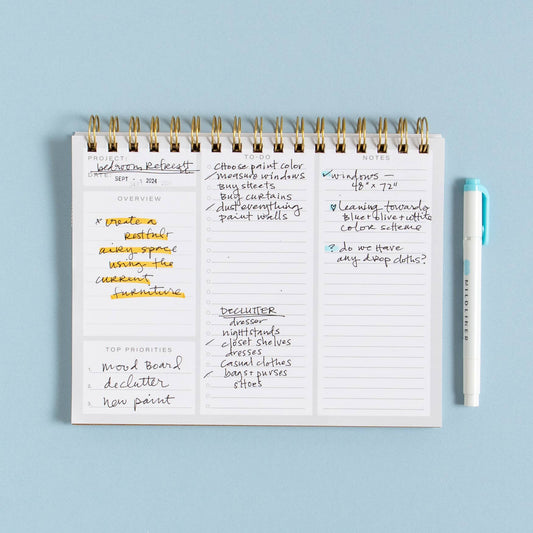 PROJECT:
bedroom Refresh
DATE:
SEPT 2024
OVERVIEW
* create a
restful
airy space
using the
current
furniture
TOP PRIORITIES
1. mood Board
2. declutter
3. new paint
TO-DO
Choose paint color
✓ measure windows
Buy sheets
Buy curtains
✓ dust everything
paint walls
DECLUTTER
dresser
nightstands
✓ closet shelves
dresses
casual clothes
✓ bags + purses
shoes
NOTES
✓ windows –
48" x 72"
♥ leaning towards
Blue + olive + white
color scheme
? do we have
any drop cloths?
MILDLINER